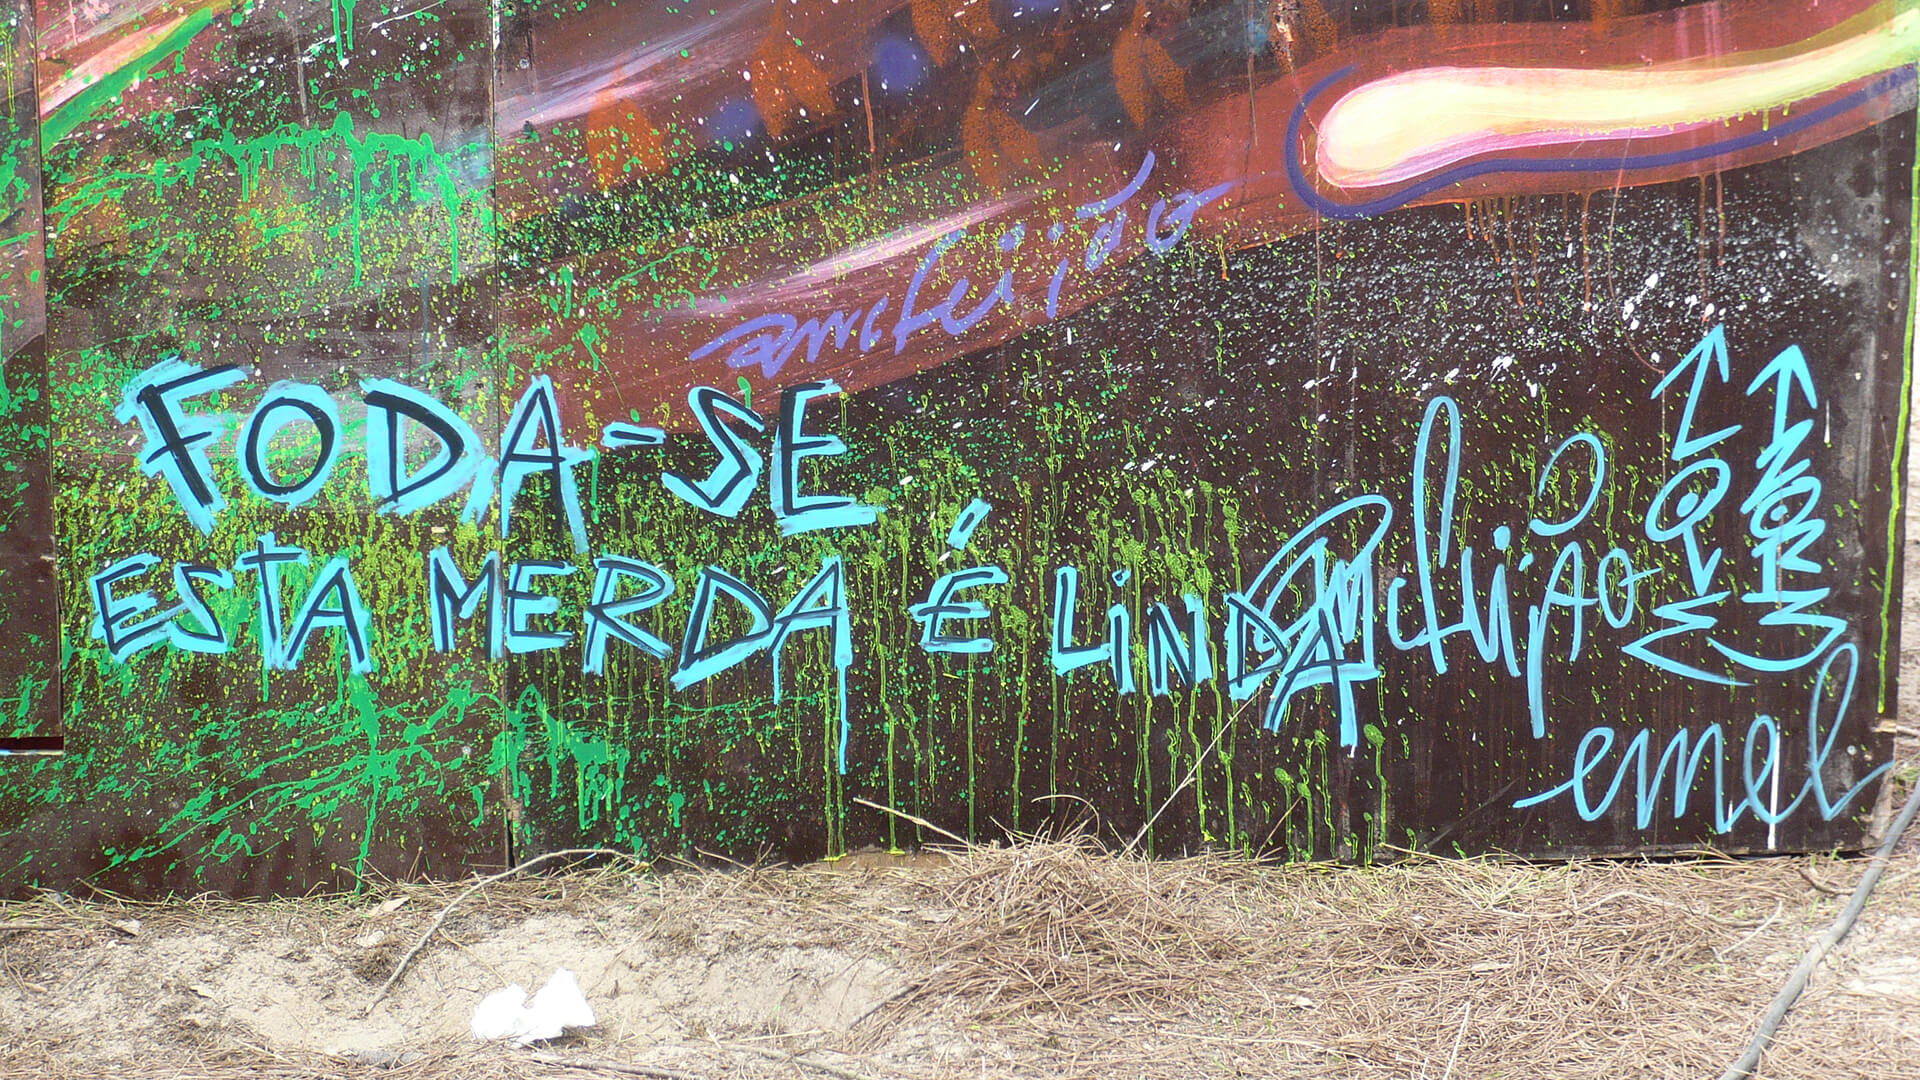 amcfeijão
FODA-SE
ESTA MERDA É LINDA
amcfeijão
emel